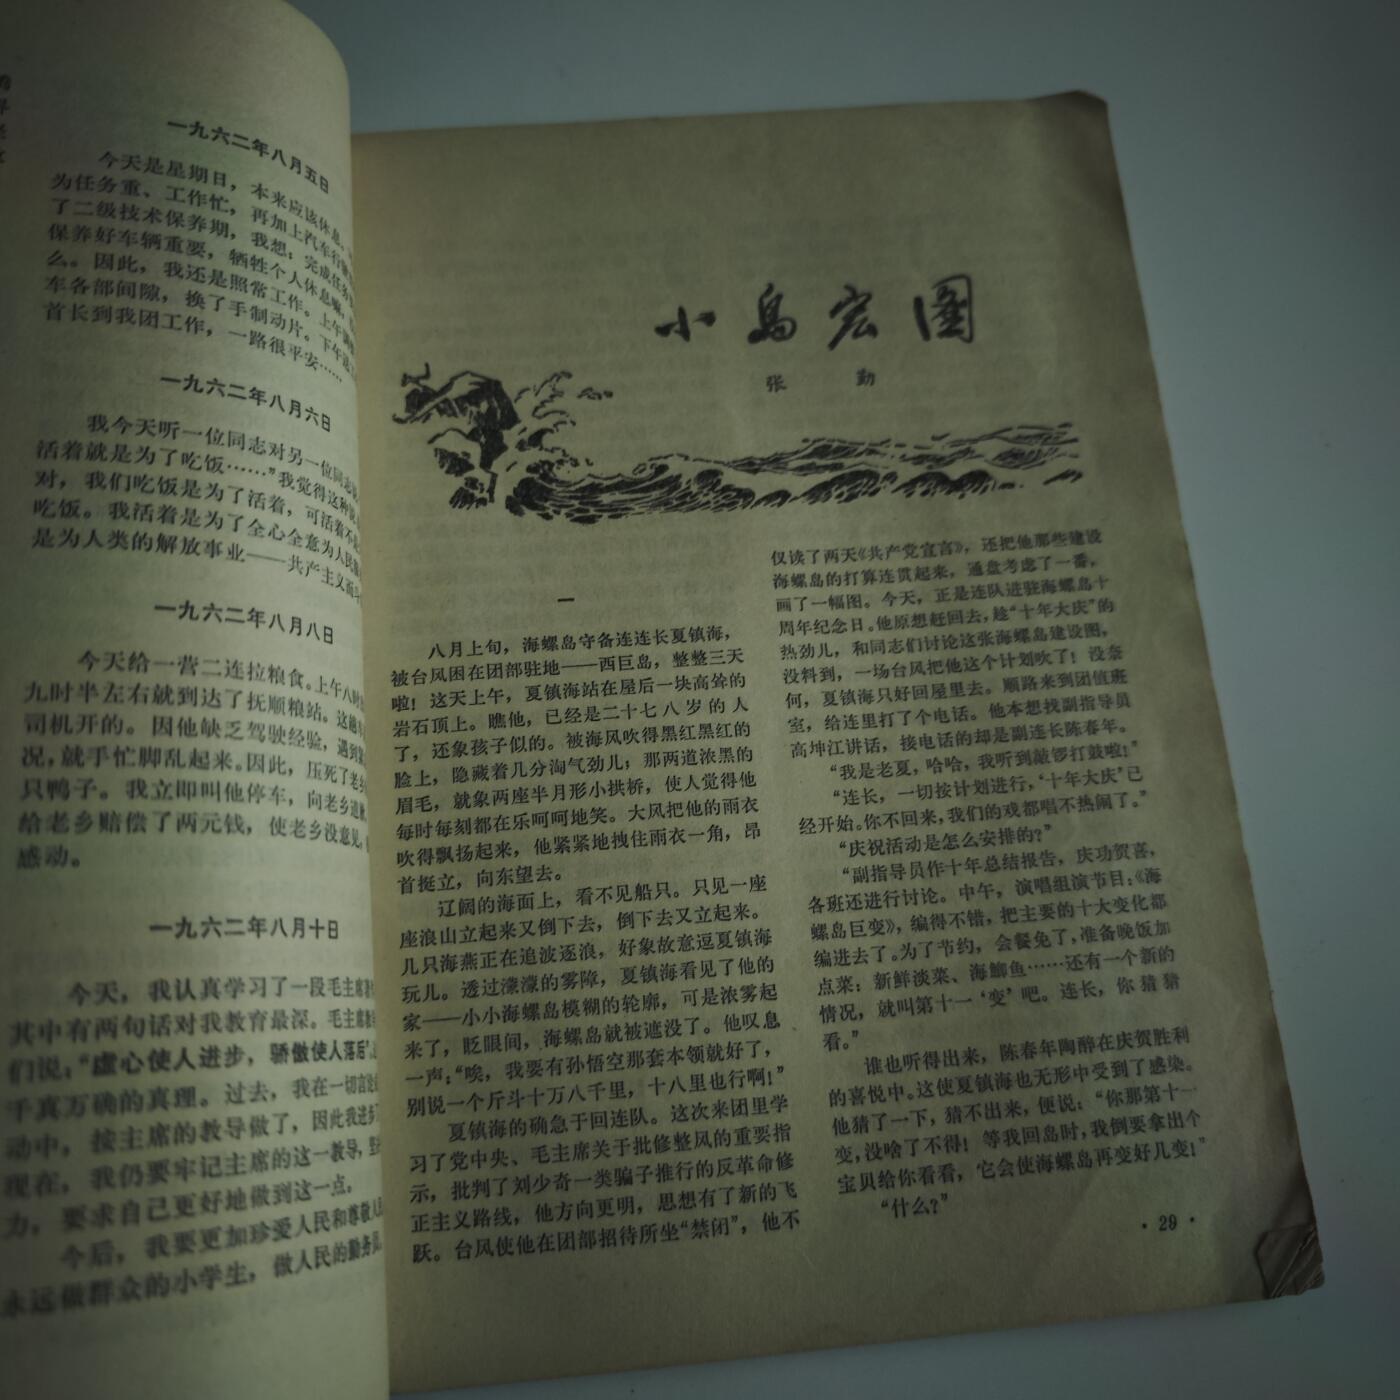 一九六二年八月五日
今天是星期日，本来应该休息，
为任务重、工作忙，再加上汽车行驶
了二级技术保养期，我想：完成任务
保养好车辆重要，牺牲个人休息嘛，
么。因此，我还是照常工作。上午调整
车各部间隙，换了手制动片。下午送
首长到我团工作，一路很平安……
一九六二年八月六日
我今天听一位同志对另一位同志说
活着就是为了吃饭……”我觉得这种说
对，我们吃饭是为了活着，可活着不是
吃饭。我活着是为了全心全意为人民服
是为人类的解放事业——共产主义而斗
一九六二年八月八日
今天给一营二连拉粮食。上午八时
九时半左右就到达了抚顺粮站。这趟
司机开的。因他缺乏驾驶经验，遇到
况，就手忙脚乱起来。因此，压死了老乡
只鸭子。我立即叫他停车，向老乡道
给老乡赔偿了两元钱，使老乡没意见，
感动。
一九六二年八月十日
今天，我认真学习了一段毛主席著
其中有两句话对我教育最深。毛主席教
们说：“虚心使人进步，骄傲使人落后”。
千真万确的真理。过去，我在一切言论
动中，按主席的教导做了，因此我进步
现在，我仍要牢记主席的这一教导，坚
力，要求自己更好地做到这一点，
今后，我要更加珍爱人民和尊敬人
永远做群众的小学生，做人民的勤务员。
小岛宏图
张 勤
一
八月上旬，海螺岛守备连连长夏镇海，
被台风困在团部驻地——西巨岛，整整三天
啦！这天上午，夏镇海站在屋后一块高耸的
岩石顶上。瞧他，已经是二十七八岁的人
了，还象孩子似的。被海风吹得黑红黑红的
脸上，隐藏着几分淘气劲儿；那两道浓黑的
眉毛，就象两座半月形小拱桥，使人觉得他
每时每刻都在乐呵呵地笑。大风把他的雨衣
吹得飘扬起来，他紧紧地拽住雨衣一角，昂
首挺立，向东望去。
辽阔的海面上，看不见船只。只见一座
座浪山立起来又倒下去，倒下去又立起来。
几只海燕正在追波逐浪，好象故意逗夏镇海
玩儿。透过濛濛的雾障，夏镇海看见了他的
家——小小海螺岛模糊的轮廓，可是浓雾起
来了，眨眼间，海螺岛就被遮没了。他叹息
一声：“唉，我要有孙悟空那套本领就好了，
别说一个斤斗十万八千里，十八里也行啊！”
夏镇海的确急于回连队。这次来团里学
习了党中央、毛主席关于批修整风的重要指
示，批判了刘少奇一类骗子推行的反革命修
正主义路线，他方向更明，思想有了新的飞
跃。台风使他在团部招待所坐“禁闭”，他不
仅读了两天《共产党宣言》，还把他那些建设
海螺岛的打算连贯起来，通盘考虑了一番，
画了一幅图。今天，正是连队进驻海螺岛十
周年纪念日。他原想赶回去，趁“十年大庆”的
热劲儿，和同志们讨论这张海螺岛建设图，
没料到，一场台风把他这个计划吹了！没奈
何，夏镇海只好回屋里去。顺路来到团值班
室，给连里打了个电话。他本想找副指导员
高坤江讲话，接电话的却是副连长陈春年。
“我是老夏，哈哈，我听到敲锣打鼓啦！”
“连长，一切按计划进行，‘十年大庆’已
经开始。你不回来，我们的戏都唱不热闹了。”
“庆祝活动是怎么安排的？”
“副指导员作十年总结报告，庆功贺喜，
各班还进行讨论。中午，演唱组演节目：《海
螺岛巨变》，编得不错，把主要的十大变化都
编进去了。为了节约，会餐免了，准备晚饭加
点菜：新鲜淡菜、海鲫鱼……还有一个新的
情况，就叫第十一‘变’吧。连长，你猜猜
看。”
谁也听得出来，陈春年陶醉在庆贺胜利
的喜悦中。这使夏镇海也无形中受到了感染。
他猜了一下，猜不出来，便说：“你那第十一
变，没啥了不得！等我回岛时，我倒要拿出个
宝贝给你看看，它会使海螺岛再变好几变！”
“什么？”
·29·